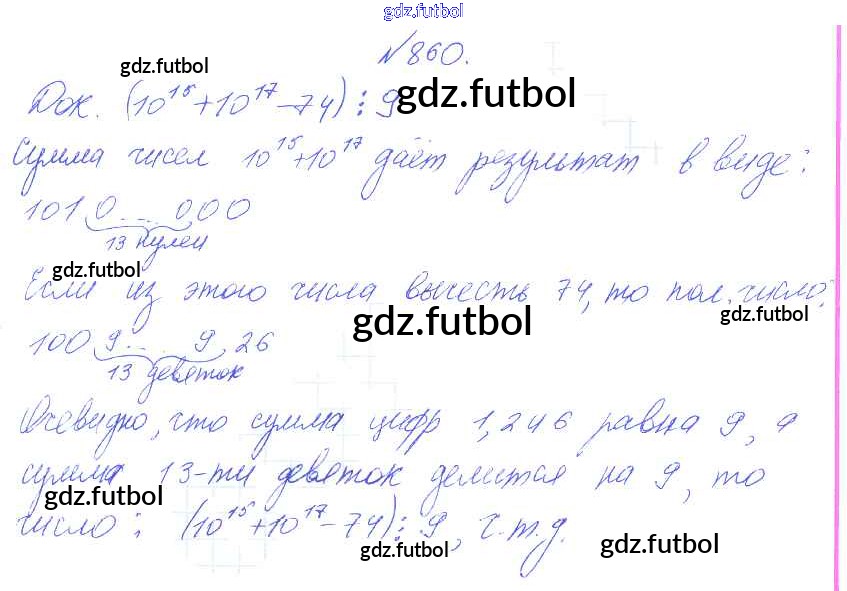 gdz.futbol
№860.
gdz.futbol
Док. (10¹⁵+10¹⁷-74) ⋮ 9
gdz.futbol
Сумма чисел 10¹⁵+10¹⁷ даёт результат в виде:
101 0 ... 000
13 нулей
gdz.futbol
Если из этого числа вычесть 74, то пол. число:
gdz.futbol
gdz.futbol
100 9 ... 9 26
13 девяток
Очевидно, что сумма цифр 1, 2 и 6 равна 9, а
сумма 13-ти девяток делится на 9, то
gdz.futbol
число: (10¹⁵+10¹⁷-74) ⋮ 9, ч.т.д.
gdz.futbol
gdz.futbol